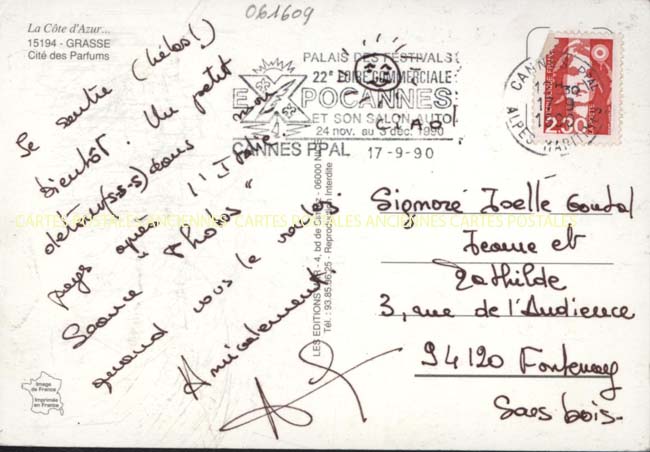 061609
La Côte d'Azur...
15194 - GRASSE
Cité des Parfums
PALAIS DES FESTIVALS
22e FOIRE COMMERCIALE
EXPOCANNES
ET SON SALON AUTO
24 nov. au 3 dec. 1990
CANNES PPAL 17-9-90
CIAO
CANNES PPAL
ALPES MARIT
2.30
Se sentire (hélas!)
bientôt. Un petit
détour(s-s-s) dans mon
pays après l'Italie
Séance "Photos"
quand vous le voulez.
Amicalement.
LES EDITIONS
4, bd de
06000
Tél. : 93.85.56.25 - Reproduction Interdite
Signoré Joëlle Goudal
Jeanne et
Mathilde
3, rue de l'Audience
94120 Fontenay
Sous bois-
Image
de France
Imprimée
en France
CARTES POSTALES ANCIENNES CARTES POSTALES ANCIENNES CARTES POSTALES